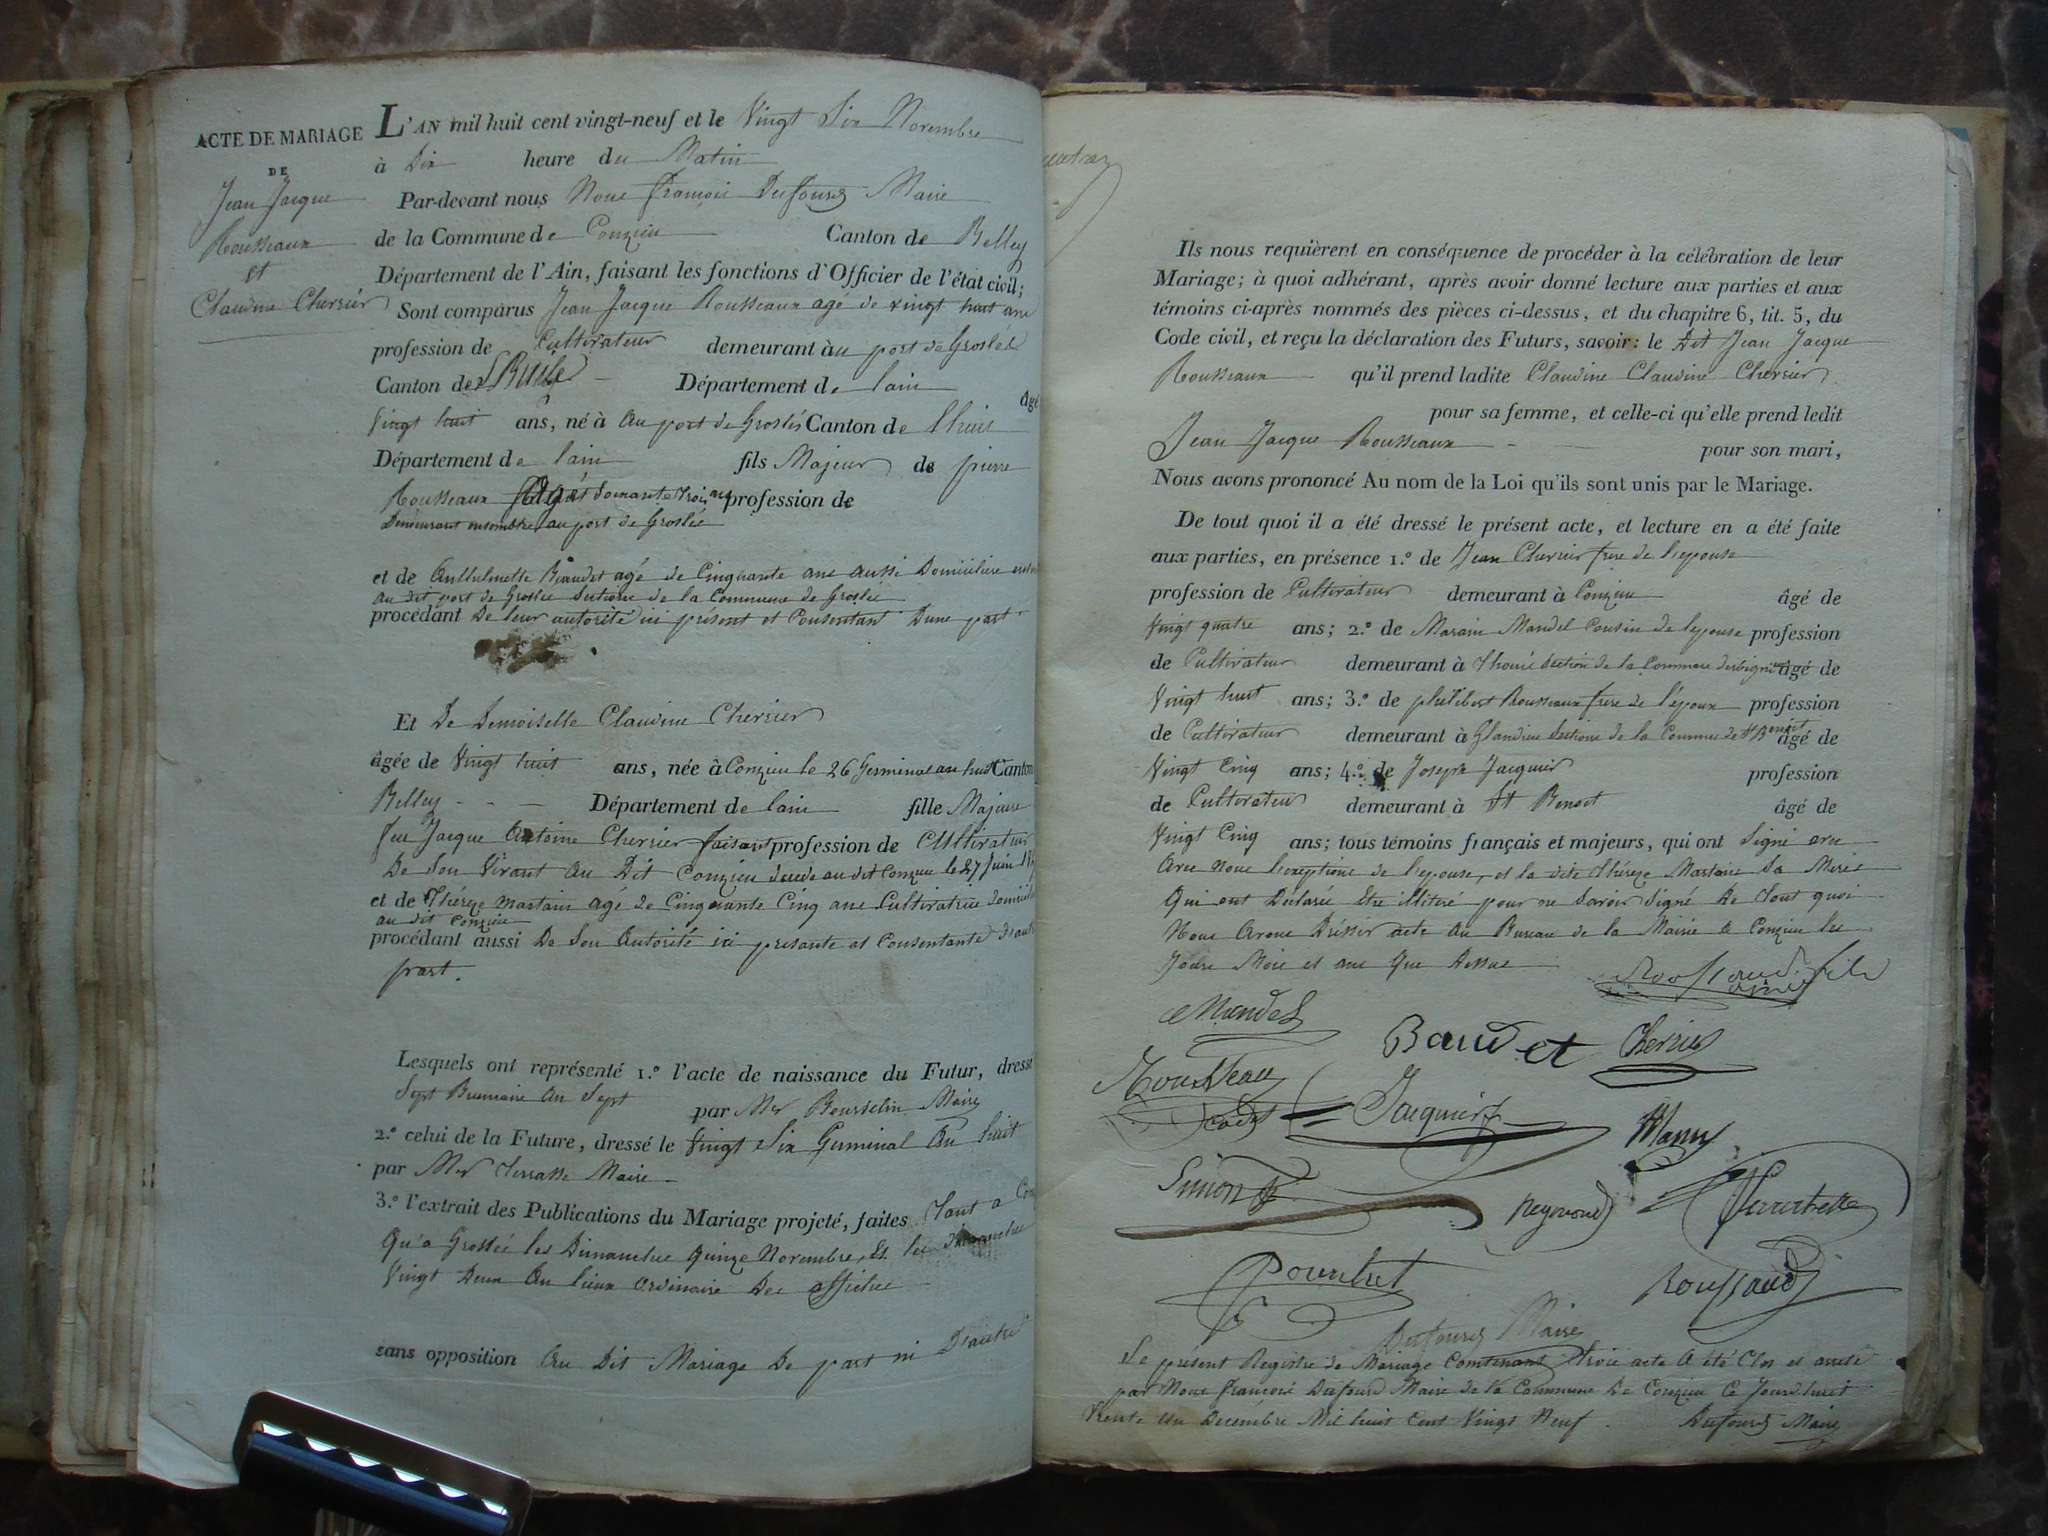 ACTE DE MARIAGE
DE
Jean Jacque
Rousseaux
et
Claudine Cherrier
L'AN mil huit cent vingt-neuf et le Vingt Six Novembre
à Dix heure du Matin
Par-devant nous Nous François Dufourd Maire
de la Commune de Conzieu Canton de Belley
Département de l'Ain, faisant les fonctions d'Officier de l'état civil;
Sont comparus Jean Jacque Rousseaux agé de vingt huit ans
profession de Cultivateur demeurant à u port de Groslée
Canton de Département de lain âgé
Vingt huit ans, né à Au port de Groslée Canton de Lhuis
Département de lain fils Majeur de pierre
Rousseaux Agé Soixante trois ans profession de
Demeurant ensemble au port de Groslée
et de Anthelmette agé de Cinquante ans aussi Domiciliée
au dit port de Groslée Section de la Commune de Groslée
procédant De leur autorité ici présent et Consentant Dune part
Et De Demoiselle Claudine Cherrier
âgée de Vingt huit ans, née à Conzieu le 26 Germinal an huit Canton
Belley - - - Département de lain fille Majeure
feu Jacque Antoine Cherrier faisant profession de Cultivateur
De Son Vivant Au Dit Conzieu décédé au dit Conzieu le 27 Juin
et de Thérèze Martain agé de Cinquante Cinq ans Cultivatrice
au dit Conzieu
procédant aussi De Son Autorité ici présante et Consentante D'autre
part.
Lesquels ont représenté 1.º l'acte de naissance du Futur, dressé
Sept Brumaire An Sept par Mr Maire
2.º celui de la Future, dressé le Vingt Six Germinal An huit
par Mr Terrasse Maire
3.º l'extrait des Publications du Mariage projeté, faites Tant a
Qu'a Groslée les Dimanches quinze Novembre, Et le Dimanche
Vingt Deux Au lieux ordinaire Des affiches
sans opposition Au Dit Mariage De part ni D'autre
Ils nous requièrent en conséquence de procéder à la célébration de leur
Mariage; à quoi adhérant, après avoir donné lecture aux parties et aux
témoins ci-après nommés des pièces ci-dessus, et du chapitre 6, tit. 5, du
Code civil, et reçu la déclaration des Futurs, savoir: le Dit Jean Jacque
Rousseaux qu'il prend ladite Claudine Claudine Cherrier
pour sa femme, et celle-ci qu'elle prend ledit
Jean Jacque Rousseaux - pour son mari,
Nous avons prononcé Au nom de la Loi qu'ils sont unis par le Mariage.
De tout quoi il a été dressé le présent acte, et lecture en a été faite
aux parties, en présence 1.º de Jean Cherrier frere de lepouse
profession de Cultivateur demeurant à Conzieu âgé de
Vingt quatre ans; 2.º de Marain Mandel Cousin de lepouse profession
de Cultivateur demeurant à section de la Commune âgé de
Vingt huit ans; 3.º de philibert Rousseaux frere de l'époux profession
de Cultivateur demeurant à Glandieu Section de la Commune de St Benoit âgé de
Vingt Cinq ans; 4.º de Joseph Jacquier profession
de Cultivateur demeurant à St Benoit âgé de
Vingt Cinq ans; tous témoins français et majeurs, qui ont Signé
Avec Nous l'exeptions de lepouse, et la dite Thérèze Martain Sa Mere
Qui ont Déclarée Etre illitéré pour ne Savoir Signé De Tout quoi
Nous Avons Dréssér acte Au Bureau de la Mairie de Conzieu les
Jours Mois et ans Que Dessus
Roussaud ainé fils
Mandel
Baud et Cherrier
Rousseau Cadet Jacquier
Mann
Simon
Reymond
Pourchet
Roussaud
Dufourd Maire
Le présent Registre de Mariage Contenant trois acte A été Clos et arreté
par Nous François Dufourd Maire de la Commune De Conzieu Ce Jourd'huit
Trente Un Decémbre Mil huit Cent Vingt Neuf. Dufourd Maire